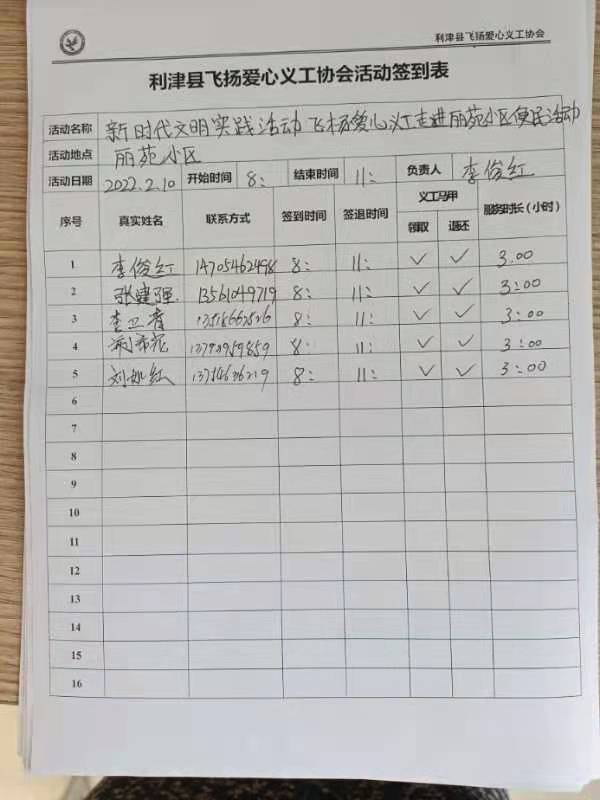 利津县飞扬爱心义工协会
利津县飞扬爱心义工协会活动签到表
活动名称 新时代文明实践活动飞杨爱心义工走进丽苑小区便民活动
活动地点 丽苑小区
活动日期 2022.2.10 开始时间 8: 结束时间 11: 负责人 李俊红
序号 真实姓名 联系方式 签到时间 签退时间 义工马甲 服务时长(小时)
领取 退还
1 李俊红 14705462498 8: 11: ✓ ✓ 3.00
2 张建强 13561049719 8: 11: ✓ ✓ 3:00
3 李卫青 8: 11: ✓ ✓ 3:00
4 8: 11: ✓ ✓ 3:00
5 8: 11: ✓ ✓ 3:00
6
7
8
9
10
11
12
13
14
15
16